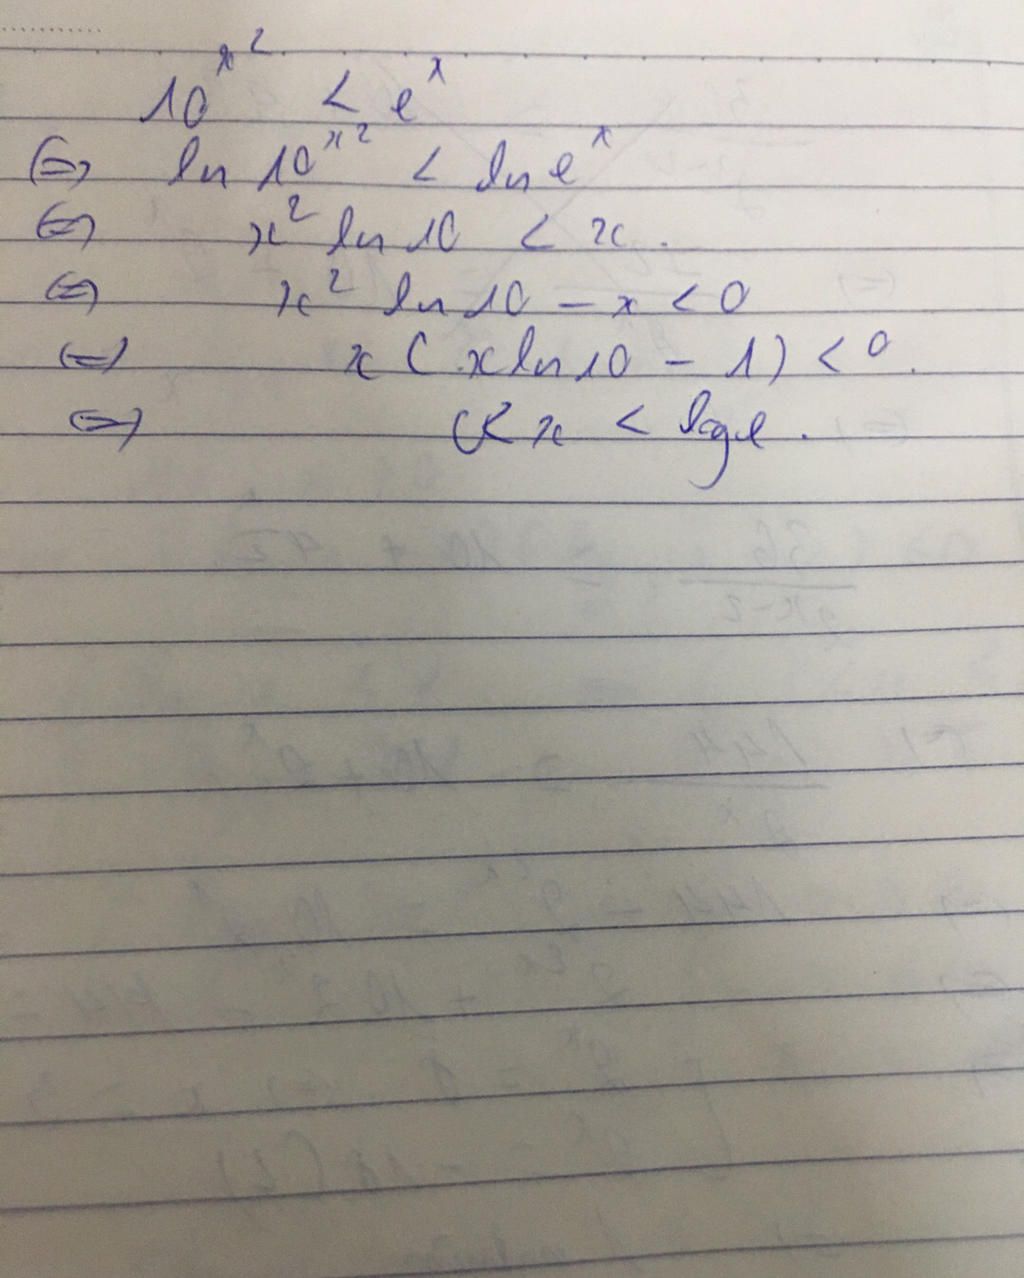 10^{x^2} < e^x
⇔ ln 10^{x^2} < ln e^x
⇔ x^2 ln 10 < x.
⇔ x^2 ln 10 - x < 0
⇔ x ( x ln 10 - 1 ) < 0.
⇔ 0 < x < log e.